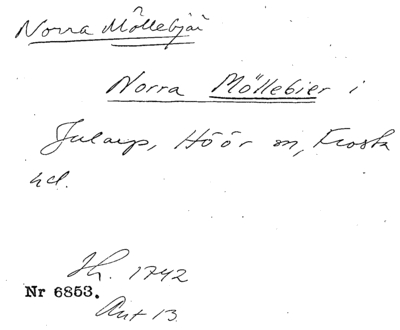 Norra Möllebjär
Norra Möllebier i
Jularp, Höör sn, Frosta
hd.
Th. 1742
Nr 6853.
Ant 13.